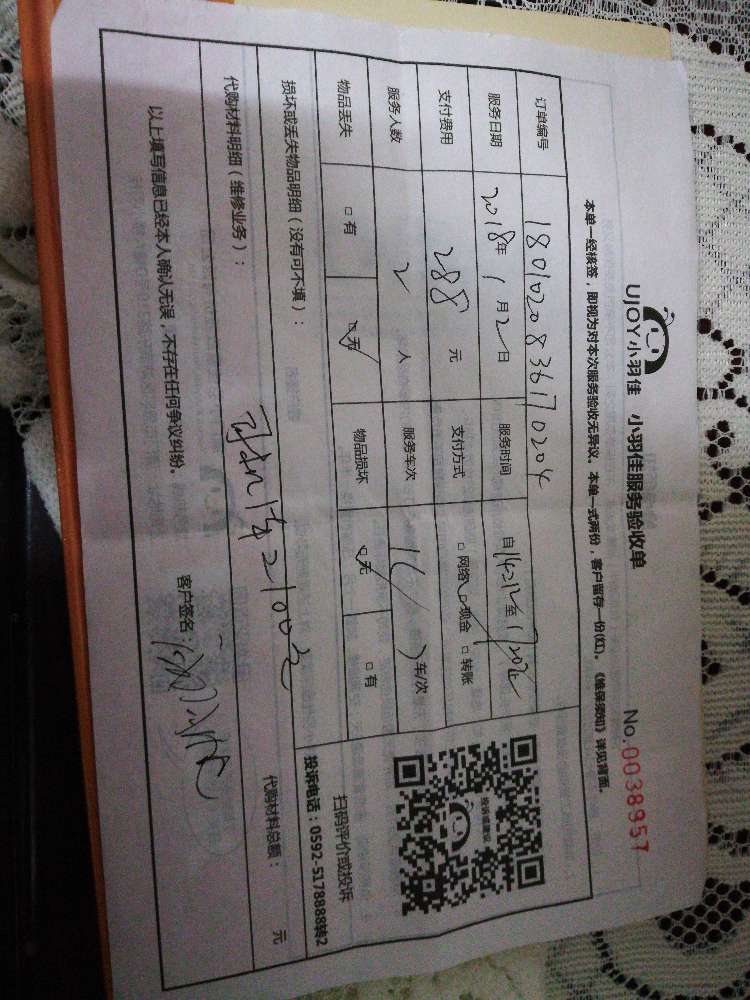 UJOY小羽佳 小羽佳服务验收单
No.0038957
本单一经核签，即视为对本次服务验收无异议，本单一式两份，客户留存一份(红)。《维保须知》详见背面。
订单编号 1801020836170204
服务日期 2018年1月2日 服务时间 自14:212至1720
支付费用 288元 支付方式 □网络 □现金 □转账
服务人数 2人 服务车次 车/次
物品丢失 □有 □无 物品损坏 □无 □有
损坏或丢失物品明细（没有可不填）：
扫码评价或投诉
投诉电话：0592-5178888转2
代购材料明细（维修业务）：
代购材料总额： 元
以上填写信息已经本人确认无误，不存在任何争议纠纷。
客户签名：